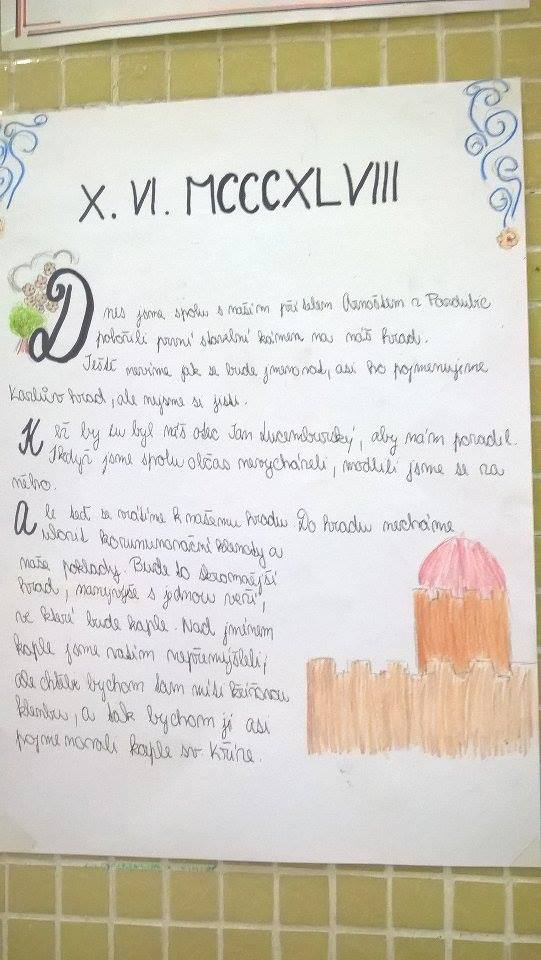 X. VI. MCCCXLVIII
Dnes jsme spolu s naším přítelem Arnoštem z Pardubic
položili první stavební kámen na náš hrad.
Ještě nevíme jak se bude jmenovat, asi ho pojmenujeme
Karlův hrad, ale nejsme si jisti.
Kéž by tu byl náš otec Jan Lucemburský, aby nám poradil.
I když jsme spolu občas nevycházeli, modlili jsme se za
něho.
Ale teď se vrátíme k našemu hradu. Do hradu necháme
uložit korumunovační klenoty a
naše poklady. Bude to skromnější
hrad, nanejvýše s jednou věží,
ve které bude kaple. Nad jménem
kaple jsme zatím nepřemýšleli,
ale chtěli bychom tam mísi křížovou
klenbu, a tak bychom ji asi
pojmenovali kaple sv. Kříže.